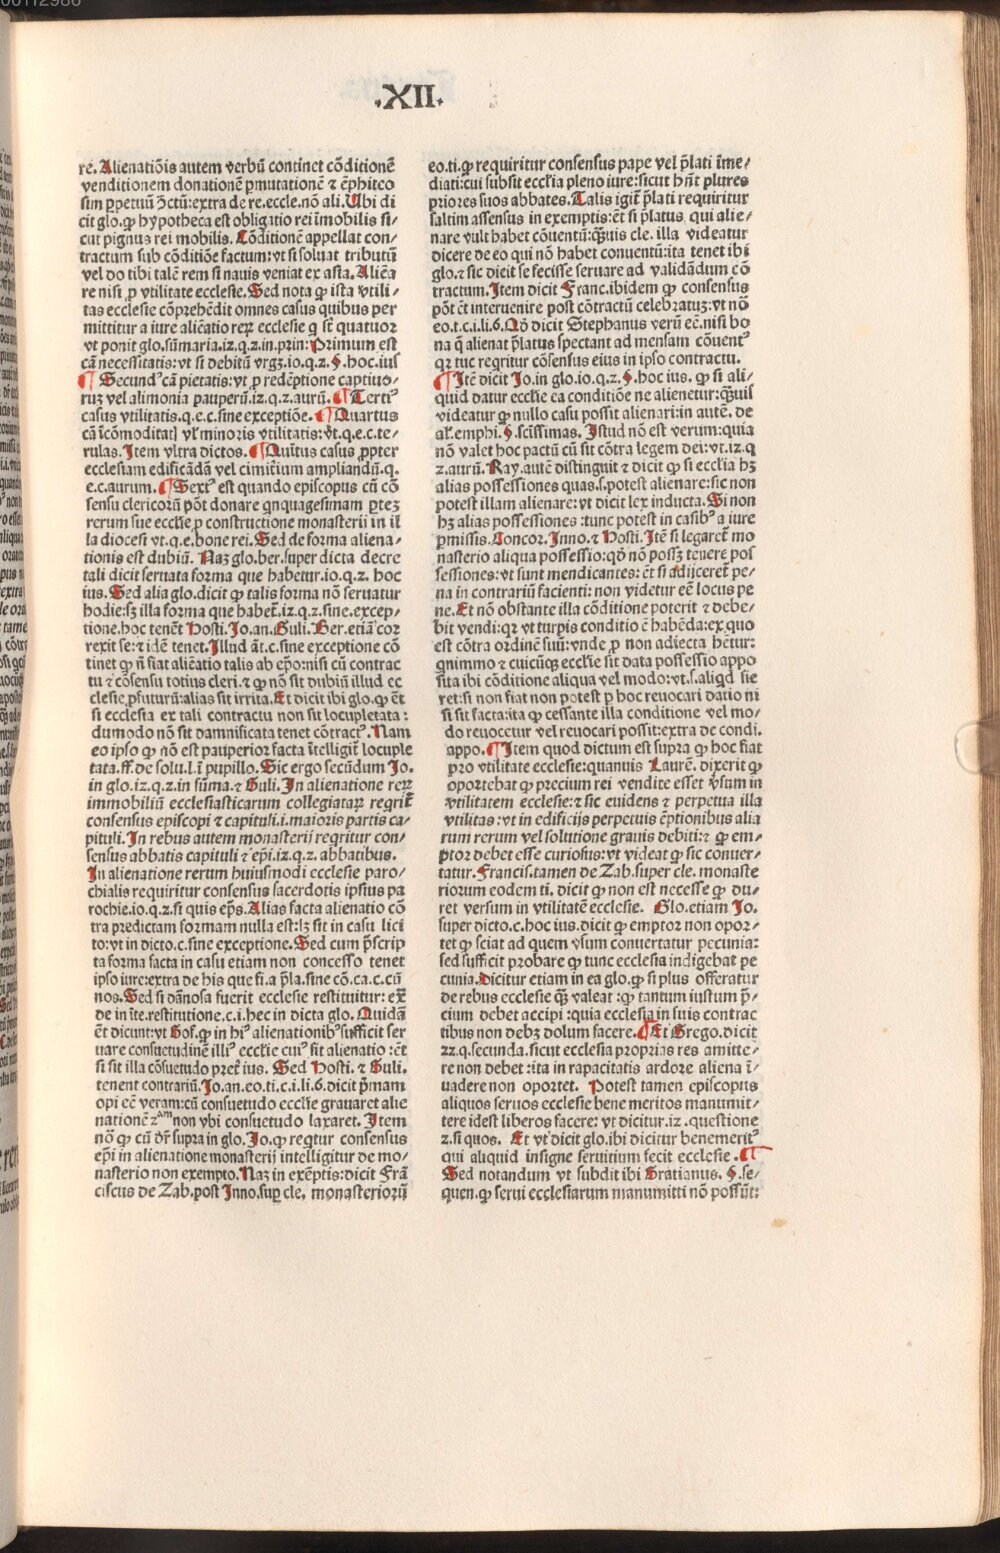 .XII.
re. Alienatiõis autem verbũ continet cõditionẽ
venditionem donationẽ ꝑmutationẽ ⁊ ẽphiteo
sim ꝑpetuũ Ↄctũ: extra de re. eccle. nõ ali. Ubi di
cit glo. ꝙ hypotheca est obligatio rei ĩmobilis si/
cut pignus rei mobilis. Cõditionẽ appellat con/
tractum sub cõditiõe factum: vt si soluat tributũ
vel do tibi talẽ rem si nauis veniat ex asta. Aliẽa
re nisi ꝓ vtilitate ecclesie. Sed nota ꝙ ista vtili/
tas ecclesie cõprehẽdit omnes casus quibus per
mittitur a iure aliẽatio reꝝ ecclesie q̃ sẽt quatuor
vt ponit glo. sũmaria. iz. q. z. in. prin: Primum est
cã necessitatis: vt si debitũ vrgꝫ. io. q. z. §. hoc. ius
¶ Secundꝰ cã pietatis: vt ꝓ redẽptione captiuo/
ruꝫ vel alimonia pauperũ. iz. q. z. aurũ. ¶ Tertiꝰ
casus vtilitatis. q. e. c. sine exceptiõe. ¶ Quartus
cã ĩcõmoditatꝭ vl̓ minoris vtilitatis: vt. q. e. c. te/
rulas. Item vltra dictos. ¶ Quĩtus casus ꝓpter
ecclesiam edificãdã vel cimiteriũ ampliandũ. q.
e. c. aurum. ¶ Sextꝰ est quando episcopus cũ cõ
sensu clericoꝝ põt donare qnquagesimam ꝑteꝫ
rerum sue eccl̓ie ꝓ constructione monasterij in il
la diocesi vt. q. e. bone rei. Sed de forma aliena/
tionis est dubiũ. Naꝫ glo. ber. super dicta decre
tali dicit seruata forma que habetur. io. q. z. hoc
ius. Sed alia glo. dicit ꝙ talis forma nõ seruatur
hodie: sꝫ illa forma que habet̃. iz. q. z. sine. excep/
tione. hoc tenẽt Hosti. Jo. an. Guli. Ber. etiã cor
rexit se: ⁊ idẽ tenet. Illud ãt. c. sine exceptione cõ
tinet ꝙ ñ fiat aliẽatio talis ab ep̃o: nisi cũ contrac
tu ⁊ cõsensu totius cleri. ⁊ ꝙ nõ sit dubiũ illud ec
clesie ꝓfuturũ: alias sit irrita. Et dicit ibi glo. ꝙ ẽt
si ecclesia ex tali contractu non sit locupletata:
dumodo nõ sit damnificata tenet cõtractꝰ. Nam
eo ipso ꝙ nõ est pauperior facta ĩtelligit̃ locuple
tata. ff. de solu. l. ĩ pupillo. Sic ergo secũdum Jo.
in glo. iz. q. z. in sũma. ⁊ Guli. In alienatione reꝝ
immobiliũ ecclesiasticarum collegiataꝝ reqrit̃
consensus episcopi ⁊ capituli. i. maioris partis ca/
pituli. In rebus autem monasterij reqritur con/
sensus abbatis capituli ⁊ ep̃i. iz. q. z. abbatibus.
In alienatione rerum huiusmodi ecclesie paro/
chialis requiritur consensus sacerdotis ipsius pa
rochie. io. q. z. si quis ep̃s. Alias facta alienatio cõ
tra predictam formam nulla est: lꝫ sit in casu lici
to: vt in dicto. c. sine exceptione. Sed cum p̃scrip
ta forma facta in casu etiam non concesso tenet
ipso iure: extra de his que fi. a p̃la. sine cõ. ca. c. cũ
nos. Sed si dãnosa fuerit ecclesie restituitur: ex̃
de in ĩte. restitutione. c. i. hec in dicta glo. Quidã
ẽt dicunt: vt Gof. ꝙ in hiꝰ alienationibꝰ sufficit ser
uare consuetudinẽ illiꝰ eccl̓ie cuiꝰ fit alienatio: ẽt
si sit illa cõsuetudo pret̃ ius. Sed Hosti. ⁊ Guli.
tenent contrariũ. Jo. an. eo. ti. c. i. li. 6. dicit p̃mam
opi eẽ veram: cũ consuetudo eccl̓ie grauaret alie
nationẽ ⁊ non vbi consuetudo laxaret. Item
nõ ꝙ cũ dr̃ supra in glo. Jo. ꝙ reqtur consensus
ep̃i in alienatione monasterij intelligitur de mo/
nasterio non exempto. Naꝫ in exẽptis: dicit Frã
ciscus de Zab. post Inno. suꝑ cle, monasterioꝝ
eo. ti. ꝙ requiritur consensus pape vel p̃lati ĩme/
diati: cui subsit eccl̓ia pleno iure: sicut hñt plures
priores suos abbates. Talis igit̃ p̃lati requiritur
saltim assensus in exemptis: ẽt si p̃latus. qui alie/
nare vult habet cõuentũ: q̃uis cle. illa videatur
dicere de eo qui nõ habet conuentũ: ita tenet ibi
glo. ⁊ sic dicit se fecisse seruare ad validãdum cõ
tractum. Item dicit Franc. ibidem ꝙ consensus
põt ẽt interuenire post cõtractũ celebratuꝫ: vt nõ
eo. t. c. i. li. 6. Qõ dicit Stephanus verũ eẽ. nisi bo
na q̃ alienat p̃latus spectant ad mensam cõuentꝰ
qꝛ tuc reqritur cõsensus eius in ipso contractu.
¶ Itẽ dicit Jo. in glo. io. q. z. §. hoc ius. ꝙ si ali/
quid datur eccl̓ie ea conditiõe ne alienetur: q̃uis
videatur ꝙ nullo casu possit alienari: in autẽ. de
al̓. emphi. §. scissimas. Istud nõ est verum: quia
nõ valet hoc pactũ cũ sit cõtra legem dei: vt. iz. q
z. aurũ. Ray. autẽ distinguit ⁊ dicit ꝙ si eccl̓ia hꝫ
alias possessiones quas. s. potest alienare: sic non
potest illam alienare: vt dicit lex inducta. Si non
hꝫ alias possessiones: tunc potest in casibꝰ a iure
ꝑmissis. Concor. Inno. ⁊ Hosti. Itẽ si legaret̃ mo
nasterio aliqua possessio: qõ nõ possꝫ tenere pos
sessiones: vt sunt mendicantes: ẽt si adijceret̃ pe/
na in contrariũ facienti: non videtur eẽ locus pe
ne. Et nõ obstante illa cõditione poterit ⁊ debe/
bit vendi: qꝛ vt turpis conditio ẽ habẽda: ex quo
est cõtra ordinẽ suũ: vnde ꝓ non adiecta hetur:
qnimmo ⁊ cuicũqꝫ eccl̓ie sit data possessio appo
sita ibi cõditione aliqua vel modo: vt. s. aliqd fie
ret: si non fiat non potest ꝓ hoc reuocari datio ni
si sit facta: ita ꝙ cessante illa conditione vel mo/
do reuocetur vel reuocari possit: extra de condi.
appo. ¶ Item quod dictum est supra ꝙ hoc fiat
pro vtilitate ecclesie: quanuis Laurẽ. dixerit ꝙ
oportebat ꝙ precium rei vendite esset v̓sum in
vtilitatem ecclesie: ⁊ sic euidens ⁊ perpetua illa
vtilitas: vt in edificijs perpetuis ẽptionibus alia
rum rerum vel solutione grauis debiti: ⁊ ꝙ em/
ptor debet esse curiosus: vt videat ꝙ sic conuer/
tatur. Francis. tamen de Zab. super cle. monaste
riorum eodem ti. dicit ꝙ non est necesse ꝙ du/
ret versum in vtilitatẽ ecclesie. Glo. etiam Jo.
super dicto. c. hoc ius. dicit ꝙ emptor non opor/
tet ꝙ sciat ad quem vsum conuertatur pecunia:
sed sufficit probare ꝙ tunc ecclesia indigebat pe
cunia. Dicitur etiam in ea glo. ꝙ si plus offeratur
de rebus ecclesie q̃ valeat: ꝙ tantum iustum p̃/
cium debet accipi: quia ecclesia in suis contrac
tibus non debꝫ dolum facere. ¶ Et Grego. dicit
zz. q. secunda. sicut ecclesia proprias res amitte/
re non debet: ita in rapacitatis ardore aliena ĩ/
uadere non oportet. Potest tamen episcopus
aliquos seruos ecclesie bene meritos manumit/
tere idest liberos facere: vt dicitur. iz. questione
z. si quos. Et vt dicit glo. ibi dicitur benemeritꝰ
qui aliquid insigne seruitium fecit ecclesie. ¶
Sed notandum vt subdit ibi Gratianus. §. se/
quen. ꝙ serui ecclesiarum manumitti nõ possũt: